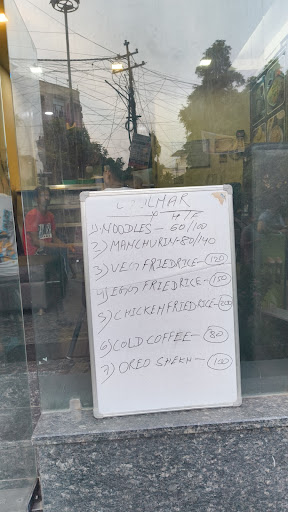 H/F
1) NOODLES - 60/100
2) MANCHURIN - 80/140
3) VEG FRIEDRICE - 120
4) EGG FRIEDRICE - 150
5) CHICKEN FRIEDRICE -
6) COLD COFFEE - 80
7) OREO SHEKH - 100